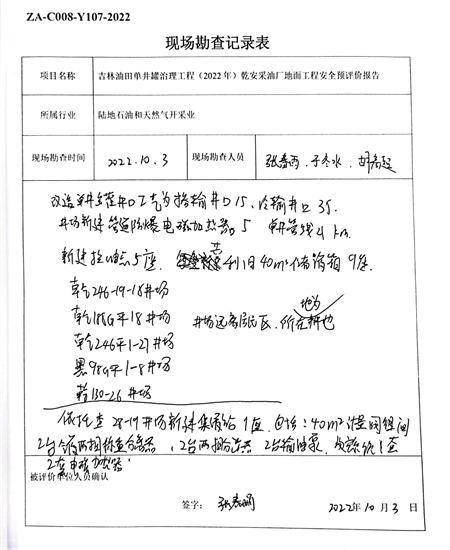 ZA-C008-Y107-2022
现场勘查记录表
项目名称 吉林油田单井罐治理工程（2022年）乾安采油厂地面工程安全预评价报告
所属行业 陆地石油和天然气开采业
现场勘查时间 2022.10.3 现场勘查人员 张春雨、于冬水、胡高超
改造单井罐井口工艺为掺输井口15、冷输井口35.
井场新建管道防爆电磁加热器5 单井管线4km.
新建拉油点5座. 利旧40m³储油箱9座.
乾246-19-18井场
乾188G平18井场
乾246平1-21井场
黑98G平1-8井场
130-26井场
井场远离居民区，所在地为耕地
依托查28-19井场新建集油站1座，包括：40m³计量阀组间
2台两相 分离器，2台两相 2台输油泵，
2套电磁加热器.
被评价单位人员确认
签字： 张春雨 2022年10月3日